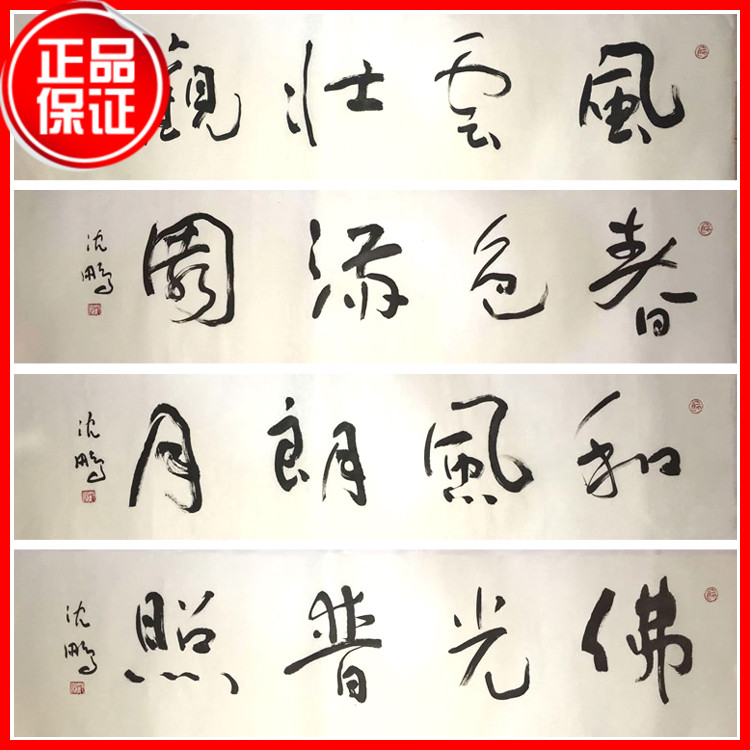 正品
保证
風雲壮觀
春色滿園
沈鵬
和風朗月
沈鵬
佛光普照
沈鵬